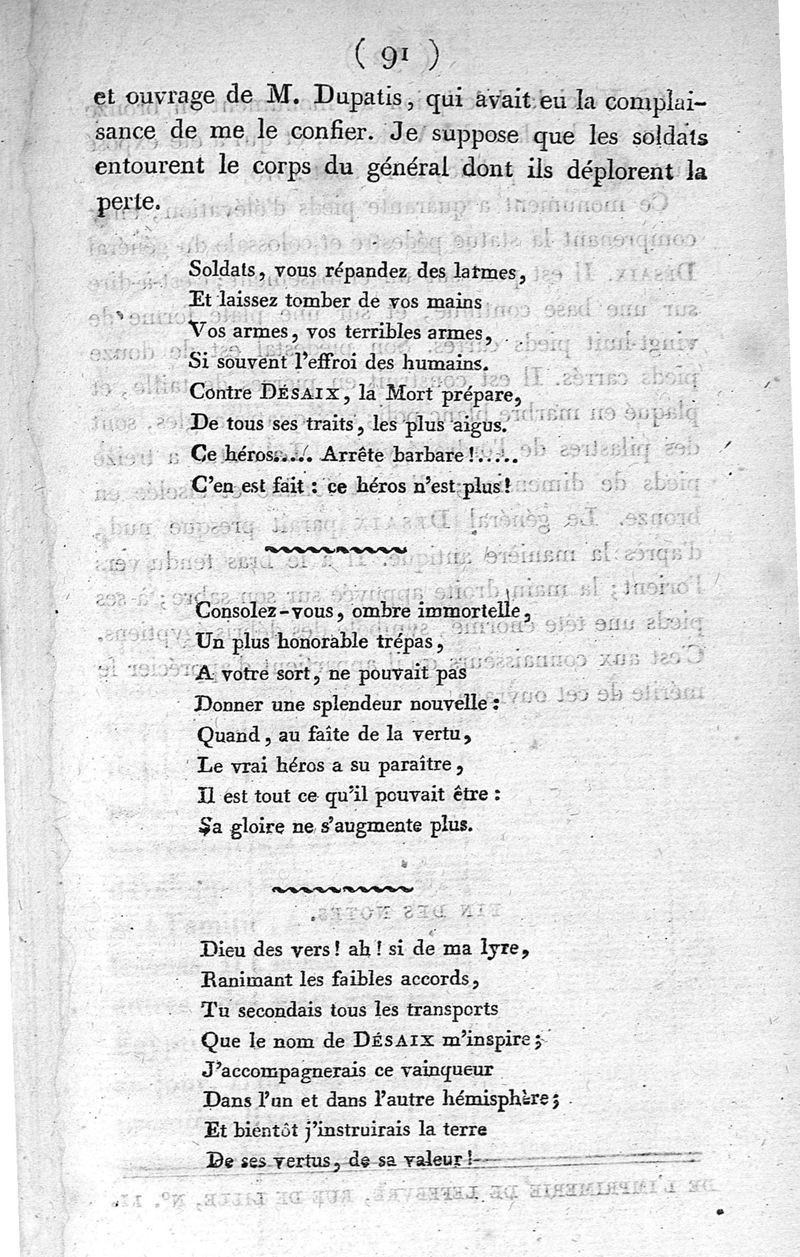 ( 91 )
et ouvrage de M. Dupatis, qui avait eu la complai-
sance de me le confier. Je suppose que les soldats
entourent le corps du général dont ils déplorent la
perte.
Soldats, vous répandez des larmes,
Et laissez tomber de vos mains
Vos armes, vos terribles armes,
Si souvent l'effroi des humains.
Contre DÉSAIX, la Mort prépare,
De tous ses traits, les plus aigus.
Ce héros..... Arrête barbare!.....
C'en est fait : ce héros n'est plus!
Consolez-vous, ombre immortelle,
Un plus honorable trépas,
A votre sort, ne pouvait pas
Donner une splendeur nouvelle :
Quand, au faîte de la vertu,
Le vrai héros a su paraître,
Il est tout ce qu'il pouvait être :
Sa gloire ne s'augmente plus.
Dieu des vers! ah! si de ma lyre,
Ranimant les faibles accords,
Tu secondais tous les transports
Que le nom de DÉSAIX m'inspire;
J'accompagnerais ce vainqueur
Dans l'un et dans l'autre hémisphère;
Et bientôt j'instruirais la terre
De ses vertus, de sa valeur!